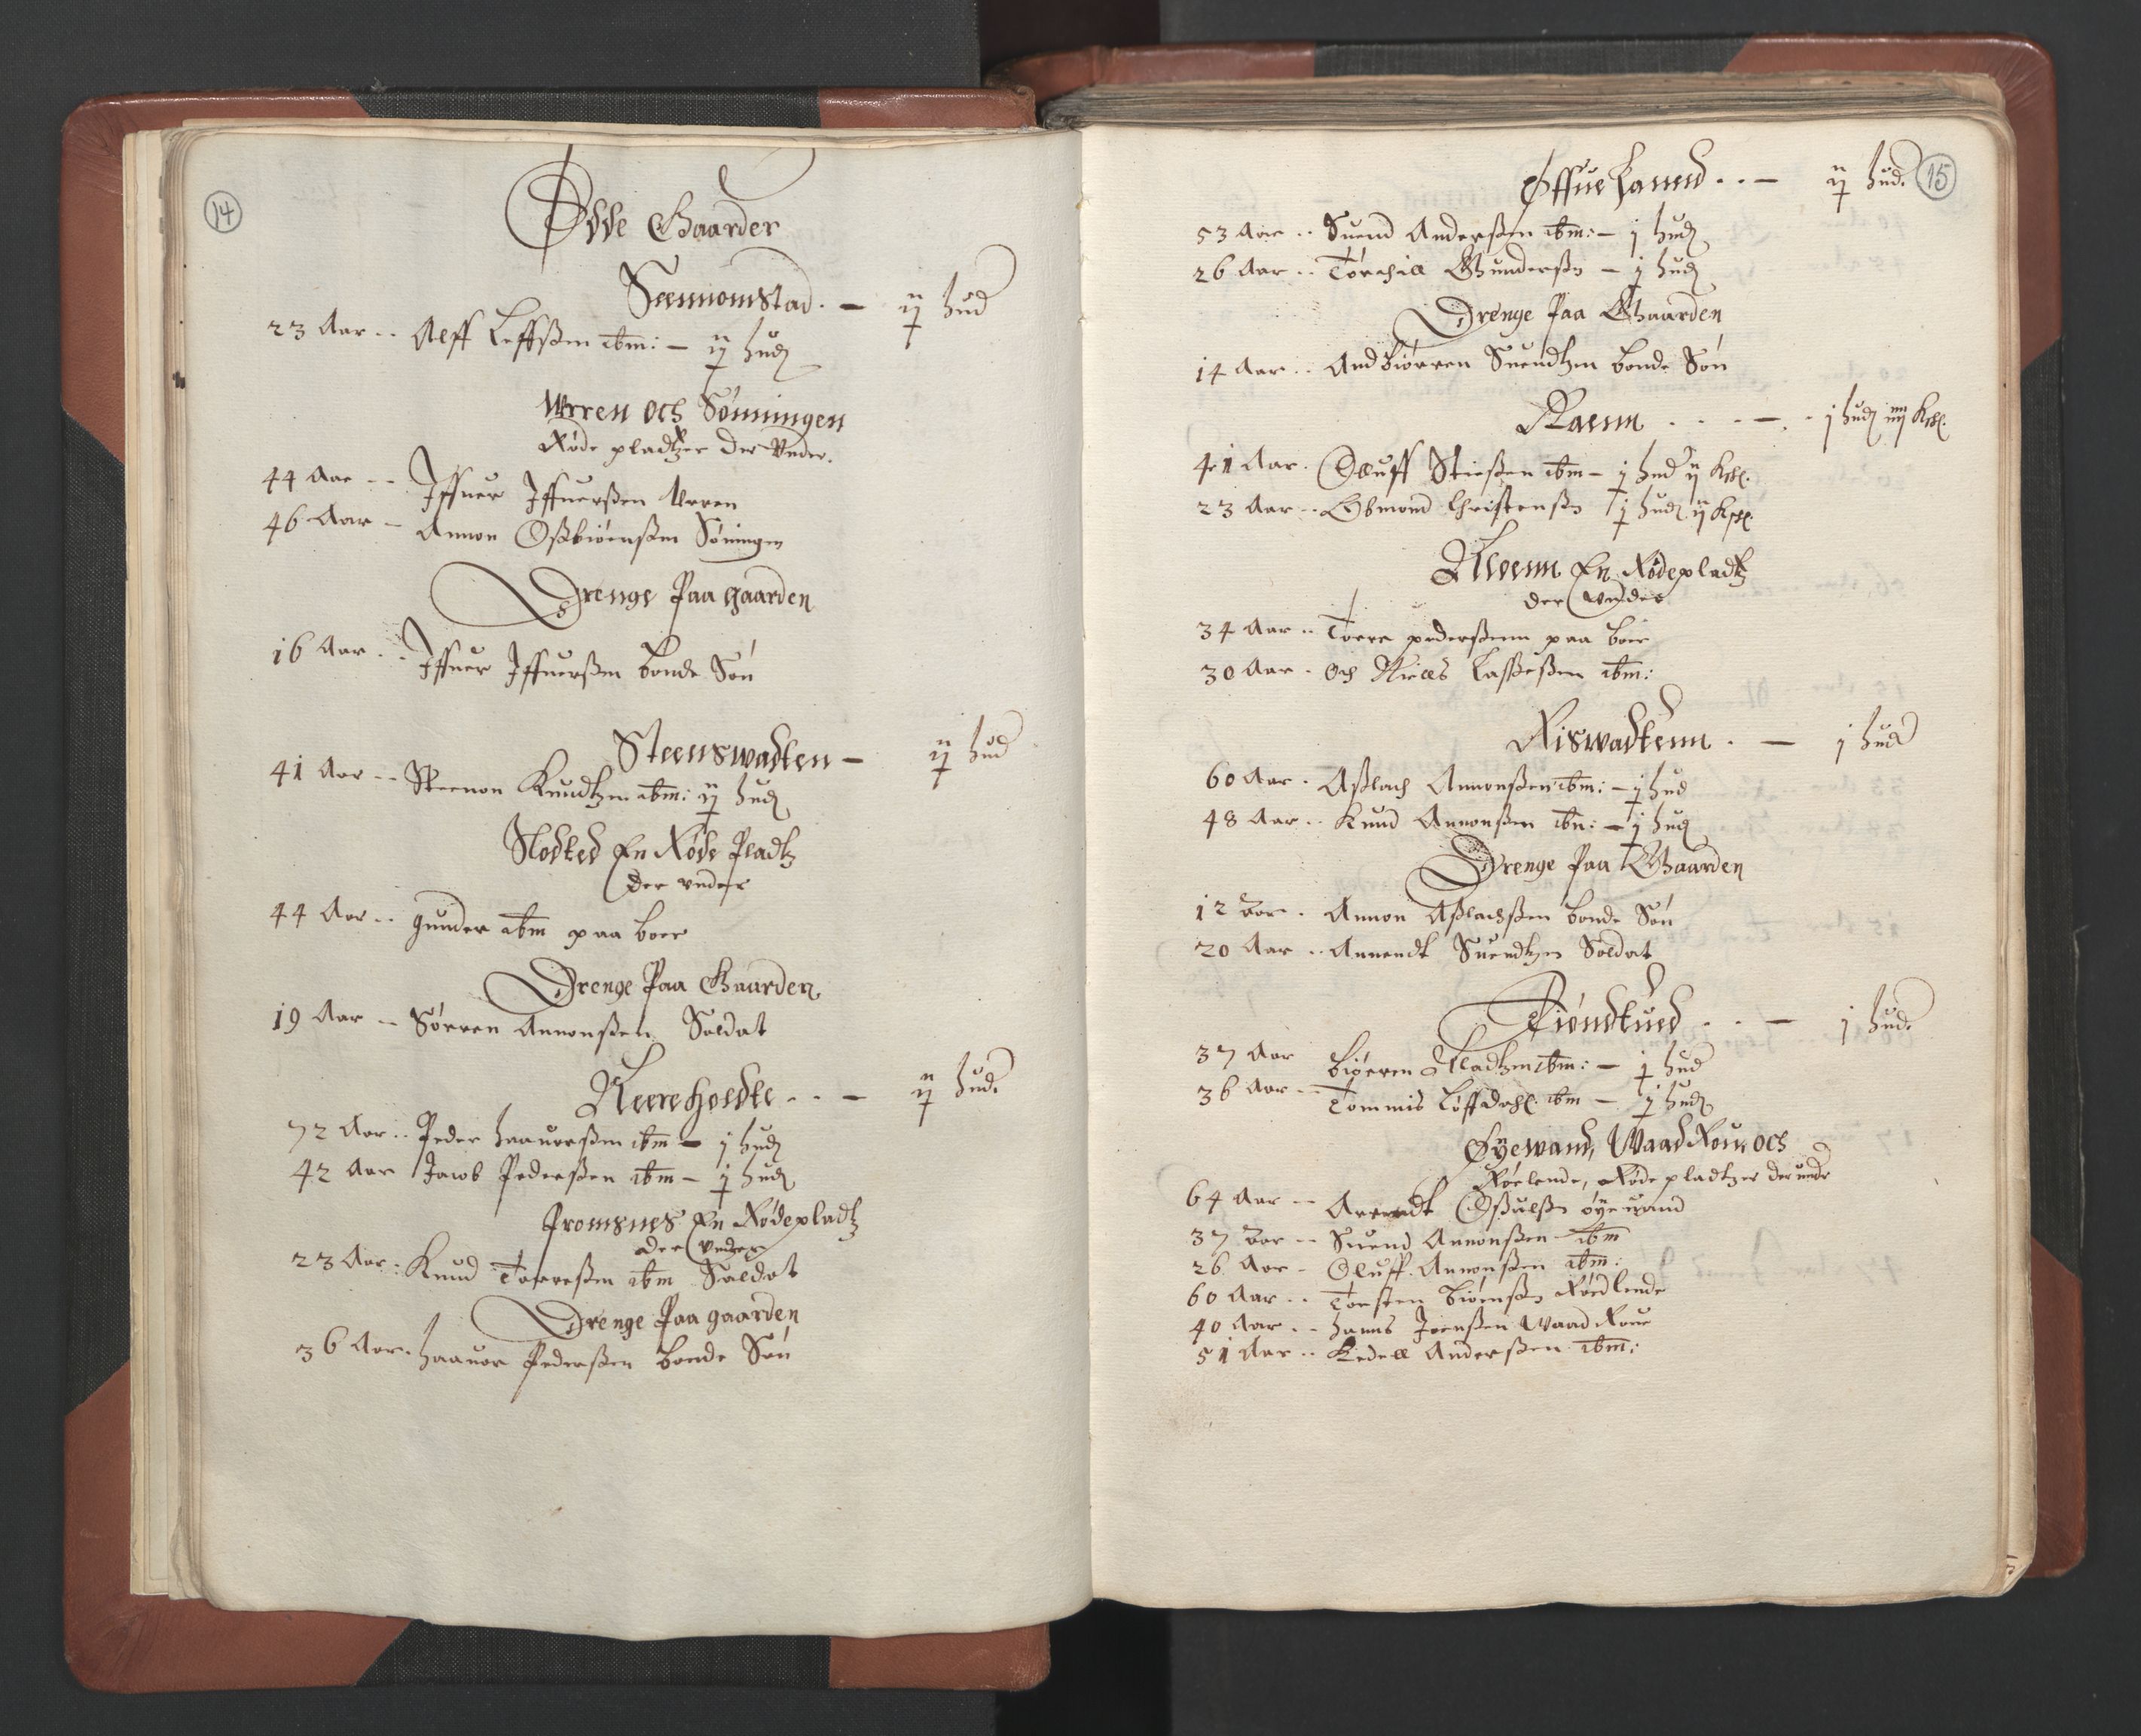 14
Øde Gaarder
Seemomstad. — ij hud
23 Aar .. Aleff Leffsßen ibm: — ij hud
Wrren och Sönningen
Röde pladtzer der Vnder.
44 Aar -- Iffuer Iffuerßen Urren
46 Aar – Annon Oßbiörnßen Söningen
Drenge Paa gaarden
16 Aar .. Iffuer Iffuerßen bonde Sön
Steenswadten — ij hud
41 Aar -- Steenon Knudtzen ibm: ij hud
Slodted En Röde Pladtz
der vnder
44 Aar .. gunder ibm paa boer
Drenge Paa Gaarden
19 Aar — Sörren Annonßen Soldat
Neereholdte .. — ij hud.
72 Aar .. Peder haauorßen ibm – j hud
42 Aar Jacob Pederßen ibm – j hud
Fromsnes En Rödepladtz
der Vnder
23 Aar : Knud Torreßen ibm Soldat
Drenge Paa gaarden
36 Aar . haauor Pederßen bonde Sön
15
Øffue Land .. — ij hud.
53 Aar .. Suend Anderßen ibm: – j hud
26 Aar .. Torchill Gunderßen – j hud
Drenge Paa Gaarden
14 Aar .. Andbiörren Suendtzen bonde Sön
Raenn .... — . - j hud iiij Kßl.
41 Aar . Olluff Stießen ibm – j hud ij Kßl.
23 Aar .. Obmond Christensßen j hud ij Kßl.
Aleenn En Rödepladtz
der vnder
34 Aar .. Torre pederßenn paa boer
30 Aar . Och Niels Laßeßen ibm:
Riswadtenn . — j hud
60 Aar . Aßlach Annonßen ibm: – j hud
48 Aar .. Knud Annonßen ibm: – j hud
Drenge Paa Gaarden
12 Aar . Annon Aßlachßen bonde Sön
20 Aar .. Annendt Suendtzen Soldat
Tiöndtued .. — j hud.
37 Aar biörren Alladtzen ibm: — j hud
36 Aar -- Tommis Löffdahl ibm — j hud
Øyewand, Waad Roue, och
Röelende, Röde pladtzer der under
64 Aar -- Arendt Oßulßen öyewand
37 Aar -- Suend Annonßen ibm
26 Aar – Oluff Annonßen ibm:
60 Aar .. Torsten biörnßen Röedlende
40 Aar .. hanns Joenßen Waad Roue
51 Aar .. Kedell Anderßen ibm: